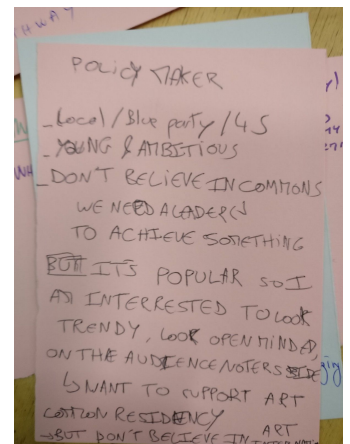 THWAY
POLICY MAKER
- Local / Blue party / 45
- YOUNG & AMBITIOUS
- DON'T BELIEVE IN COMMONS
WE NEED A LEADER(s)
TO ACHIEVE SOMETHING
BUT ITS POPULAR SO I
AM INTERRESTED TO LOOK
TRENDY, LOOK OPEN MINDED,
ON THE AUDIENCE NOTERS SIDE
↳ WANT TO SUPPORT ART
COMMON RESIDENCY
→ BUT DON'T BELIEVE IN ART